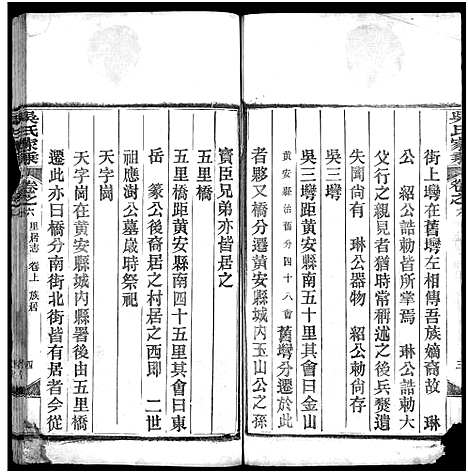 吳氏家乘
卷之六
三
街上塆在舊塆左相傳吾族嫡裔故　琳
公　紹公誥勅皆所掌焉　琳公誥勅大
父行之親見者猶時常稱述之後兵燹遺
失閩尚有　琳公器物　紹公勅尚存
吳三塆
吳三塆距黃安縣南五十里其會曰金山
黃安縣治舊分四十八會　舊塆分遷於此
者夥又橋分遷黃安縣城內玉山公之孫
寳臣兄弟亦皆居之
五里橋
五里橋距黃安縣南四十五里其會曰東
岳　篆公後裔居之村居之西即　二世
祖應澍公墓歲時祭祀
天字崗
天字崗在黃安縣城內縣署後由五里橋
遷此亦曰橋分南街北街皆有居者今從
吳氏家乘
卷之六　里居志　卷上　族居
四